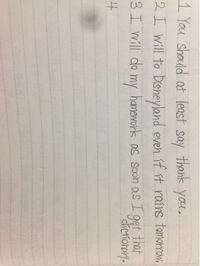 1 You should at least say thank you.
2 I will to Disneyland even if it rains tomorrow.
3 I will do my homework as soon as I get that
dictionary.
4